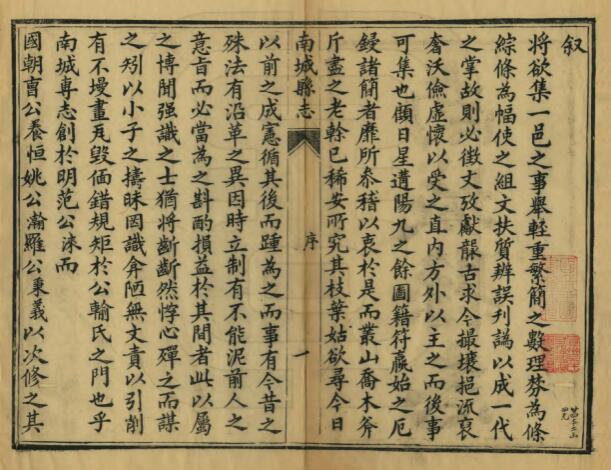 叙
将欲集一邑之事舉輕重繁簡之數理棼為條
綜條為幅使之組文扶質辨誤刊譌以成一代
之掌故則必徵文攷獻龎古求今撮壤挹流裒
奢沃儉虛懷以受之直内方外以主之而後事
可集也顧日星遘陽九之餘圖籍符嬴始之厄
鋟諸簡者靡所叅稽以衷於是而叢山喬木斧
斤盡之老榦已稀安所究其枝葉姑欲尋今日
南城縣志
序
一
以前之成憲循其後而踵為之而事有今昔之
殊法有沿革之異因時立制有不能泥前人之
意旨而必當為之斟酌損益於其間者此以屬
之博聞强識之士猶將齗齗然悖心殫之而謀
之矧以小子之擣昧罔識弇陋無文責以引削
有不墁畫瓦毀偭錯規矩於公輸氏之門也乎
南城專志創於明范公淶而
國朝曺公養恒姚公瀚羅公秉義以次修之其